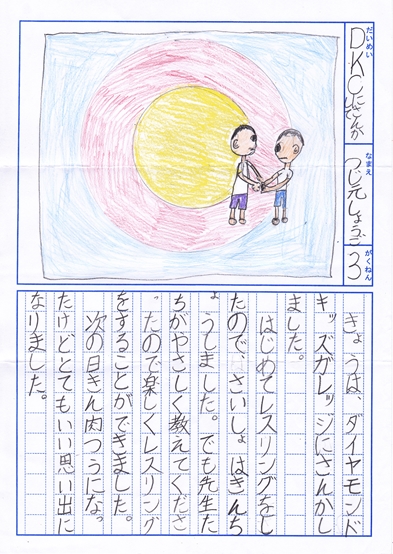 だいめい
DKCにさんかして
なまえ
つじ元しょうご
がくねん
3
きょうは、ダイヤモンド
キッズガレッジにさんかし
ました。
はじめてレスリングをし
たので、さいしょはきんち
ょうしました。でも先生た
ちがやさしく教えてくださ
ったので楽しくレスリング
をすることができました。
次の日きん肉つうになっ
たけどとてもいい思い出に
なりました。